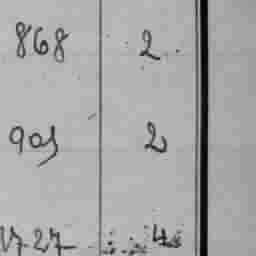 868 2
905 2
1727 4